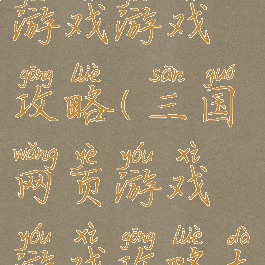 游戏游戏
gōng lüè sān guó
攻略(三国
wǎng yè yóu xì
网页游戏
yóu xì gōng lüè dà
游戏攻略大